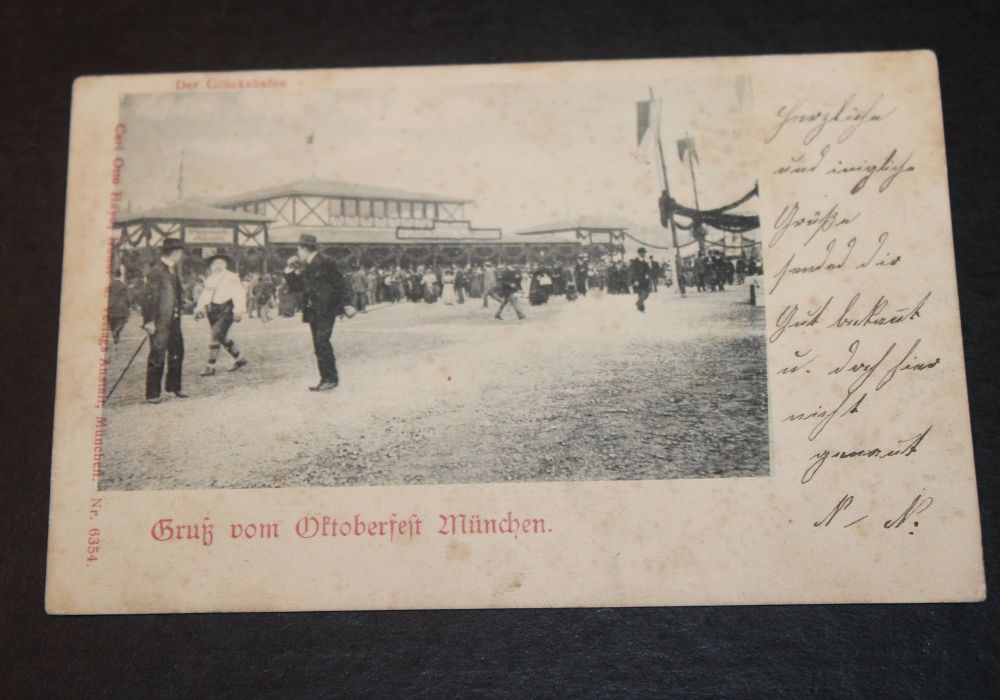 Der Glückshafen
Carl Otto Hayd, Verlags Anstalt, München. Nr. 6354.
Herzliche
und inigliche
Grüße
sended dir
Gut bekannt
u. doch hier
nicht
genannt
N – N.
Gruß vom Oktoberfest München.